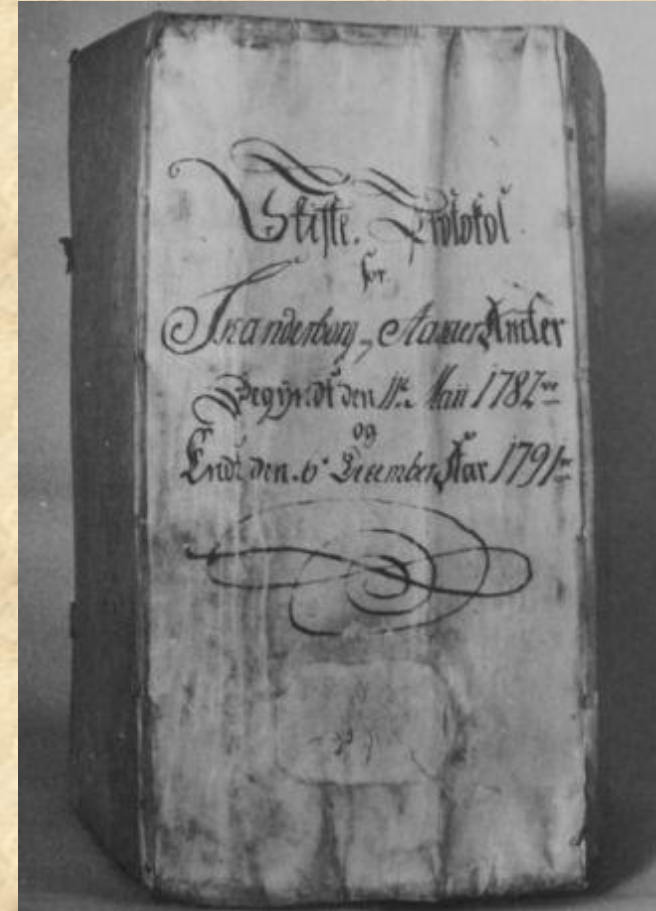 Skifte. Protokol
for
Skanderborg og Aarhuus Amter
Begyndt den 11te Maii 1787
og
Endt den 6te December Aar 1791